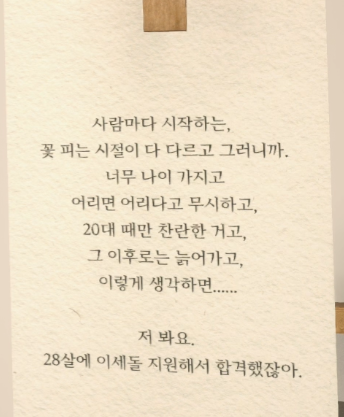 사람마다 시작하는,
꽃 피는 시절이 다 다르고 그러니까.
너무 나이 가지고
어리면 어리다고 무시하고,
20대 때만 찬란한 거고,
그 이후로는 늙어가고,
이렇게 생각하면......
저 봐요.
28살에 이세돌 지원해서 합격했잖아.